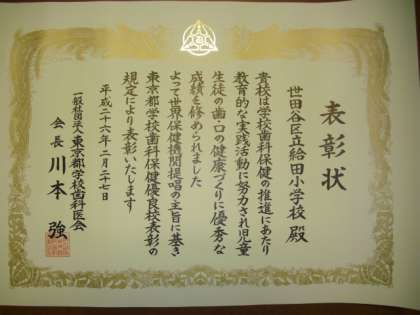 表彰状
世田谷区立給田小学校 殿
貴校は学校歯科保健の推進にあたり
教育的な実践活動に努力され児童
生徒の歯・口の健康づくりに優秀な
成績を修められました
よって世界保健機関提唱の主旨に基き
東京都学校歯科保健優良校表彰の
規定により表彰いたします
平成二十六年二月二十七日
一般社団法人 東京都学校歯科医会
会長 川本 強